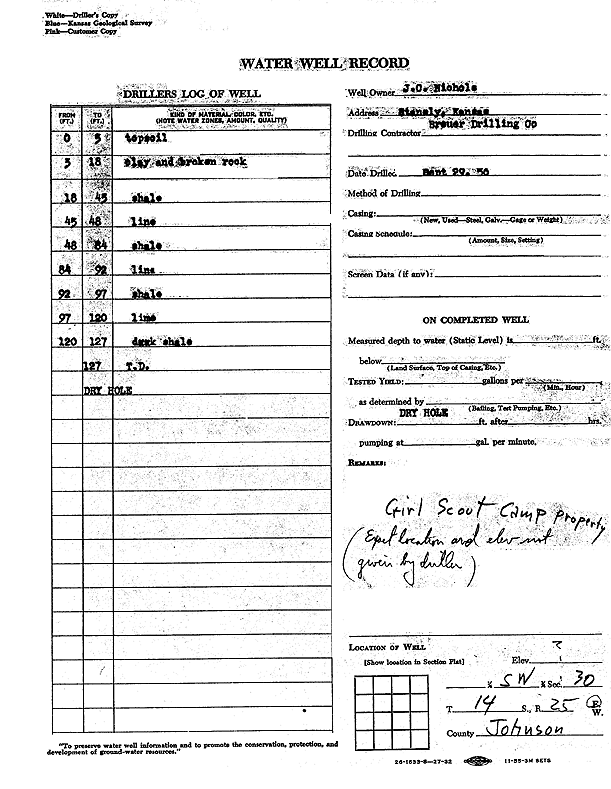 White—Driller's Copy
Blue—Kansas Geological Survey
Pink—Customer Copy
WATER WELL RECORD
DRILLERS LOG OF WELL
FROM (FT.) TO (FT.) KIND OF MATERIAL, COLOR, ETC. (NOTE WATER ZONES, AMOUNT, QUALITY)
0 5 topsoil
5 18 clay and broken rock
18 45 shale
45 48 lime
48 84 shale
84 92 lime
92 97 shale
97 120 lime
120 127 dark shale
127 T.D.
DRY HOLE
"To preserve water well information and to promote the conservation, protection, and
development of ground-water resources."
Well Owner J.C. Nichols
Address Kansas
Breuer Drilling Co
Drilling Contractor
Date Drilled Sept 29, 56
Method of Drilling
Casing:
(New, Used—Steel, Galv.—Gage or Weight)
Casing Schedule:
(Amount, Size, Setting)
Screen Data (if any):
ON COMPLETED WELL
Measured depth to water (Static Level) is ft.
below
(Land Surface, Top of Casing, Etc.)
TESTED YIELD: gallons per
(Min., Hour)
as determined by
(Bailing, Test Pumping, Etc.)
DRY HOLE
DRAWDOWN: ft. after hrs.
pumping at gal. per minute.
REMARKS:
Girl Scout Camp Property
(Exact location and elev not
given by driller)
LOCATION OF WELL
[Show location in Section Plat]
?
Elev.
¼ SW ¼ Sec. 30
T. 14 S., R. 25 E. W.
County Johnson
26-1533-S—27-32 11-55-3M SETS